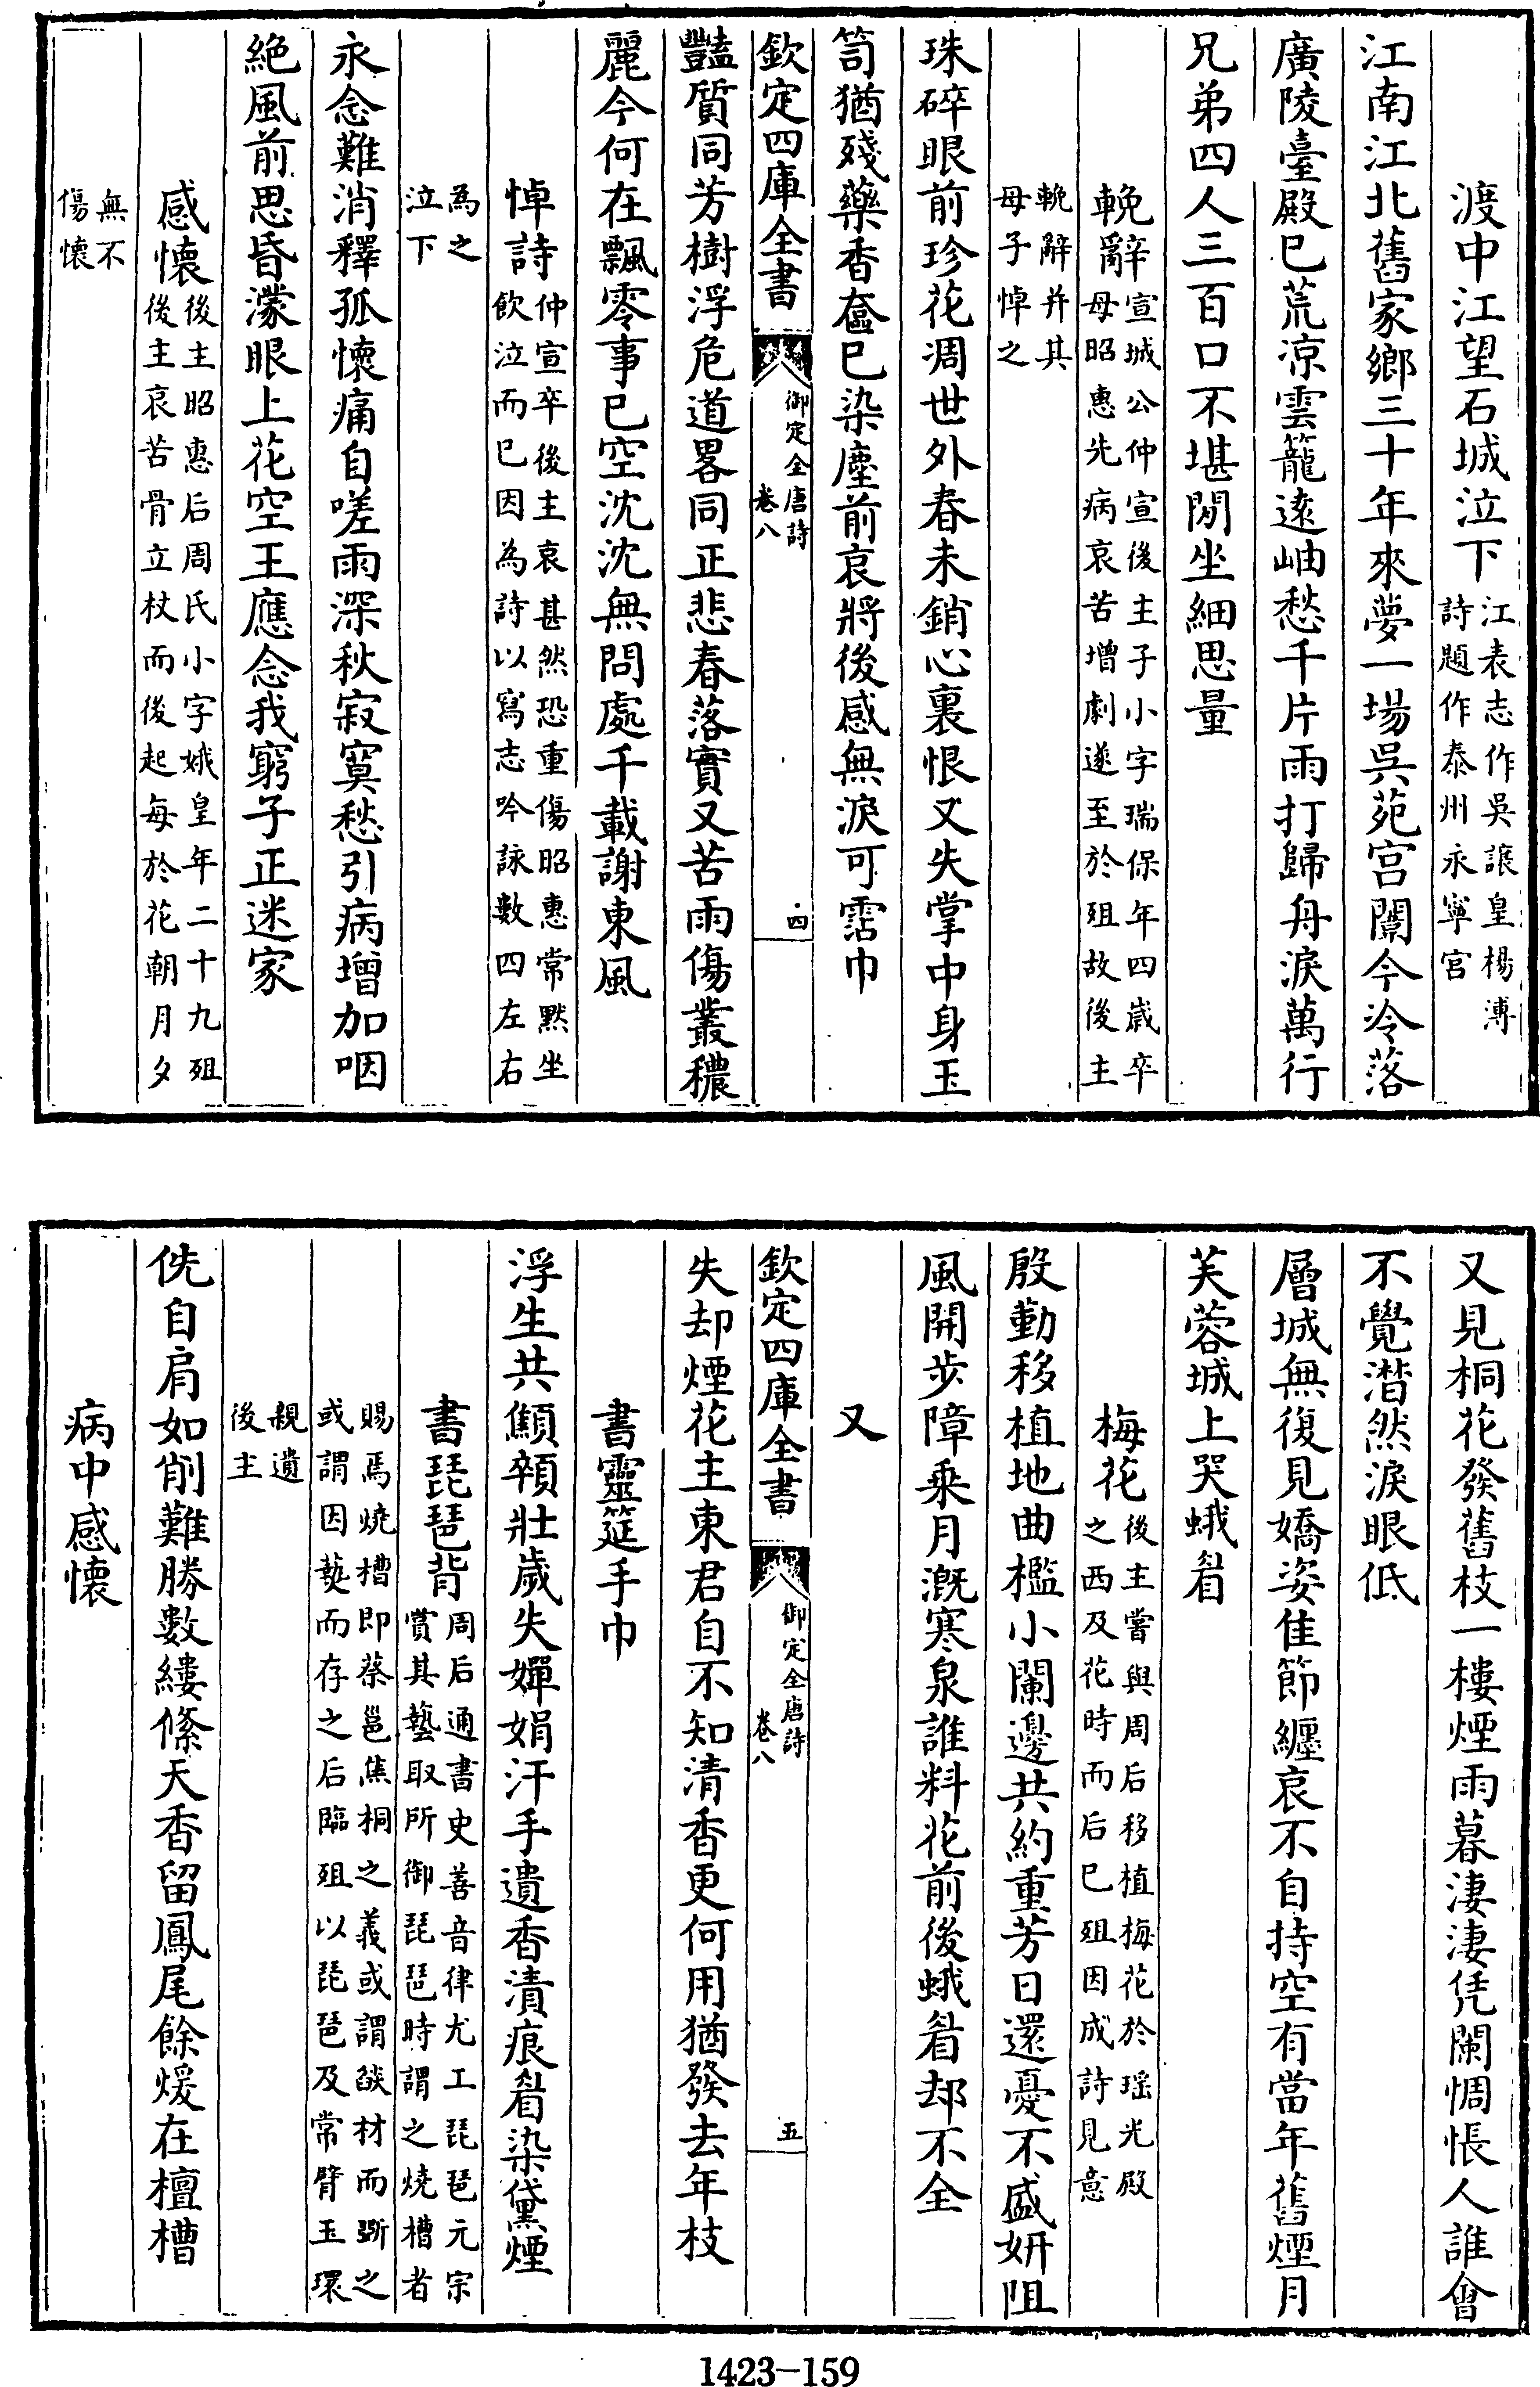 渡中江望石城泣下江表志作吳讓皇楊溥
詩題作泰州永寧宫
江南江北舊家鄉三十年來夢一場吳苑宫闈今冷落
廣陵臺殿已荒凉雲籠逺岫愁千片雨打歸舟淚萬行
兄弟四人三百口不堪閒坐細思量
輓辭宣城公仲宣後主子小字瑞保年四歲卒
母昭惠先病哀苦增劇遂至於殂故後主
輓辭并其
母子悼之
珠碎眼前珍花凋世外春未銷心裏恨又失掌中身玉
笥猶殘藥香奩已染塵前哀將後感無淚可霑巾
欽定四庫全書
御定全唐詩
卷八
四
豔質同芳樹浮危道畧同正悲春落實又苦雨傷叢穠
麗今何在飄零事已空沈沈無問處千載謝東風
悼詩仲宣卒後主哀甚然恐重傷昭惠常黙坐
飲泣而已因為詩以寫志吟詠數四左右
為之
泣下
永念難消釋孤懷痛自嗟雨深秋寂寞愁引病增加咽
絶風前思昏濛眼上花空王應念我窮子正迷家
感懷後主昭惠后周氏小字娥皇年二十九殂
後主哀苦骨立杖而後起每於花朝月夕
無不
傷懷
又見桐花發舊枝一樓煙雨暮淒淒凭闌惆悵人誰會
不覺潸然淚眼低
層城無復見嬌姿佳節纒哀不自持空有當年舊煙月
芙蓉城上哭蛾眉
梅花後主嘗與周后移植梅花於瑶光殿
之西及花時而后已殂因成詩見意
殷勤移植地曲檻小闌邊共約重芳日還憂不盛妍阻
風開步障乗月溉寒泉誰料花前後蛾眉却不全
又
欽定四庫全書
御定全唐詩
卷八
五
失却煙花主東君自不知清香更何用猶發去年枝
書靈筵手巾
浮生共顦顇壯歲失嬋娟汗手遺香漬痕眉染黛煙
書琵琶背周后通書史善音律尤工琵琶元宗
賞其藝取所御琵琶時謂之燒槽者
賜焉燒槽即蔡邕焦桐之義或謂燄材而斲之
或謂因爇而存之后臨殂以琵琶及常臂玉環
親遺
後主
侁自肩如削難勝數縷絛天香留鳳尾餘煖在檀槽
病中感懷
1423-159